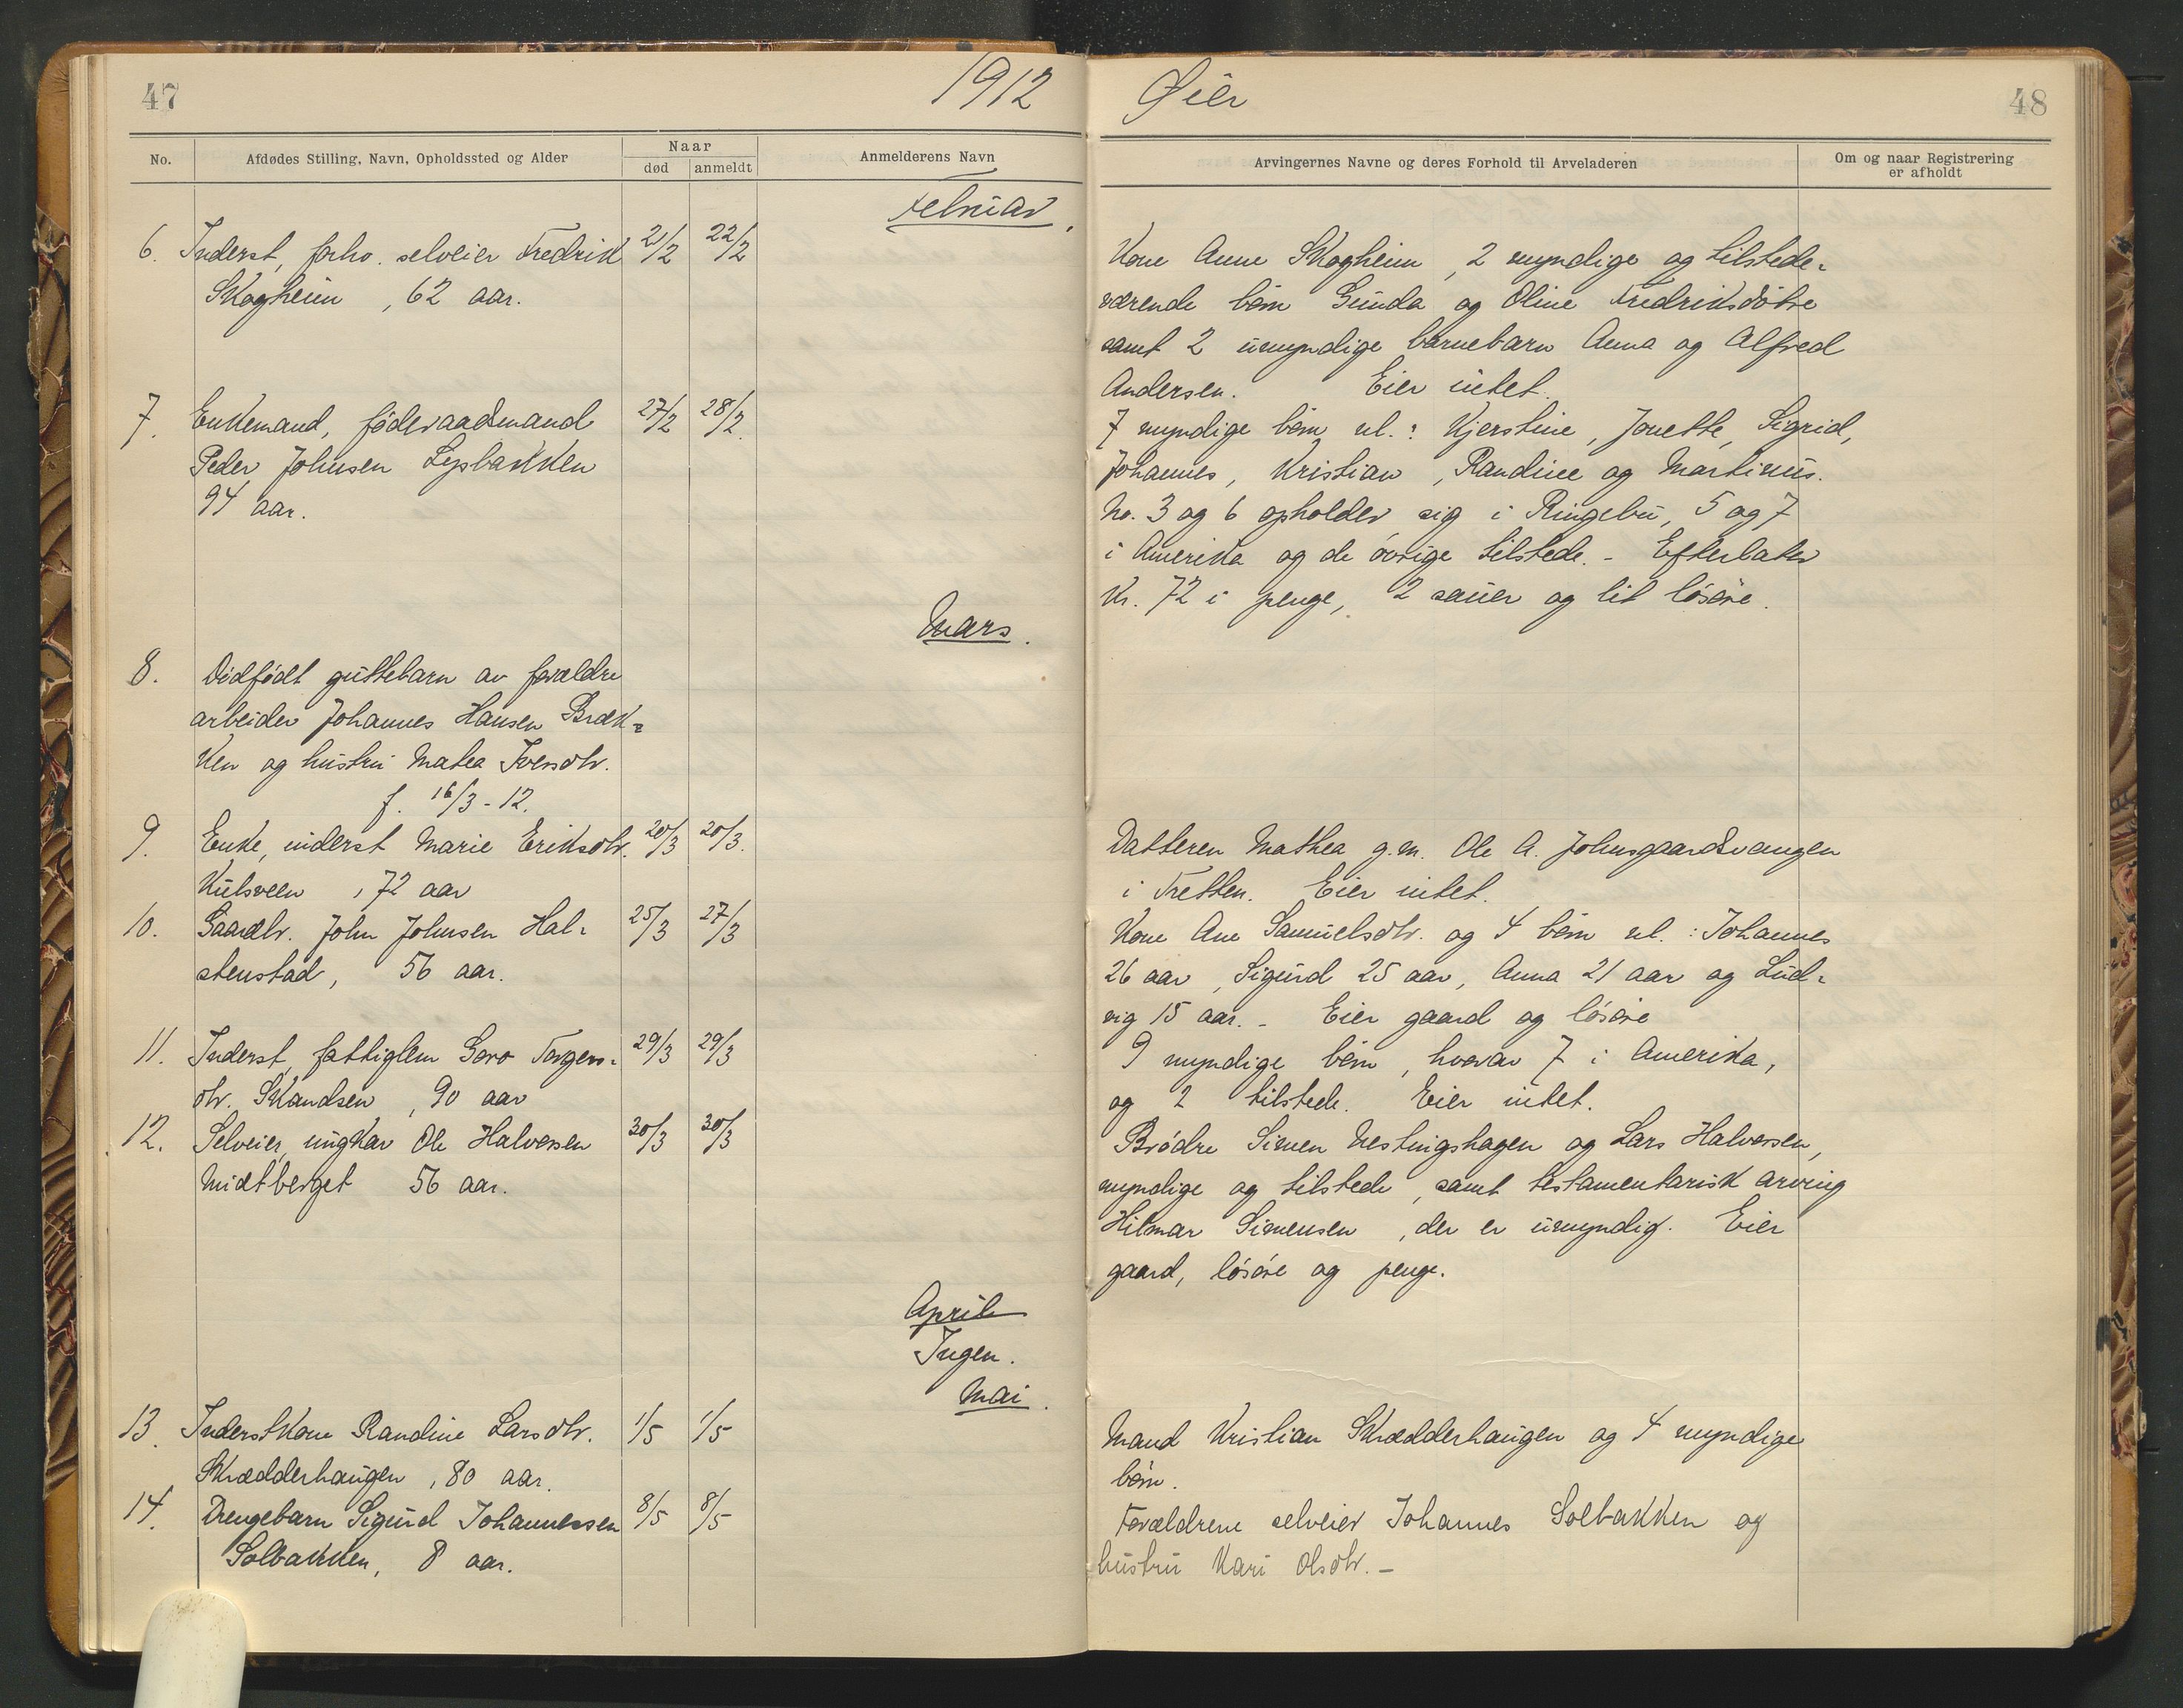 47
1912
No.
Afdødes Stilling, Navn, Opholdssted og Alder
Naar
død
anmeldt
Anmelderens Navn
Februar.
6. Inderst, forhv. selveier Fredrik 21/2 22/2
Skogheim, 62 aar.
7. Enkemand, föderaadsmand 27/2 28/2.
Peder Johnsen Lysbakken
94 aar.
Mars.
8. Dödfödt guttebarn av forældre
arbeider Johannes Hansen Bræk-
ken og hustru Matea Iversdtr.
f. 16/3 - 12.
9. Enke, inderst Marie Eriksdtr. 20/3 20/3.
Kutsveen, 72 aar
10. Gaardbr. John Johnsen Hal- 25/3 27/3
stenstad, 56 aar.
11. Inderst, fattiglem Goro Torgers- 29/3 29/3
dtr. Skandsen, 90 aar
12. Selveier, ungkar Ole Halvorsen 30/3 30/3
Midtberget 56 aar.
April
Ingen.
Mai.
13. Inderstkone Randine Larsdtr. 1/5 1/5
Skrædderhaugen, 80 aar.
14. Drengebarn Sigurd Johannessen 8/5 8/5
Solbakken, 8 aar.
Øier
48
Arvingernes Navne og deres Forhold til Arveladeren
Om og naar Registrering
er afholdt
Kone Anne Skogheim, 2 myndige og tilstede-
værende börn Gunda og Oline Fredriksdötre
samt 2 umyndige barnebarn Anna og Alfred
Andersen. Eier intet.
7 myndige börn nl.: Kjerstine, Jonette, Sigrid,
Johannes, Kristian, Randine og Martinus.
No. 3 og 6 opholder sig i Ringebu, 5 og 7
i Amerika og de övrige tilstede. - Efterlater
Kr. 72 i penge, 2 sauer og lit lösöre.
Datteren Mathea g.m. Ole A. Johnsgaardsvangen
i Tretten. Eier intet.
Kone Ane Samuelsdtr. og 4 börn nl.: Johannes
26 aar, Sigurd 25 aar, Anna 21 aar og Lud-
vig 15 aar. - Eier gaard og lösöre
9 myndige börn, hvorav 7 i Amerika,
og 2 tilstede. Eier intet.
Brödre Simen Nestingshagen og Lars Halvorsen,
myndige og tilstede, samt testamentarisk arving
Hilmar Simensen, der er umyndig. Eier
gaard, lösöre og penge.
Mand Kristian Skrædderhaugen og 4 myndige
börn.
Forældrene selveier Johannes Solbakken og
hustru Kari Olsdtr. -